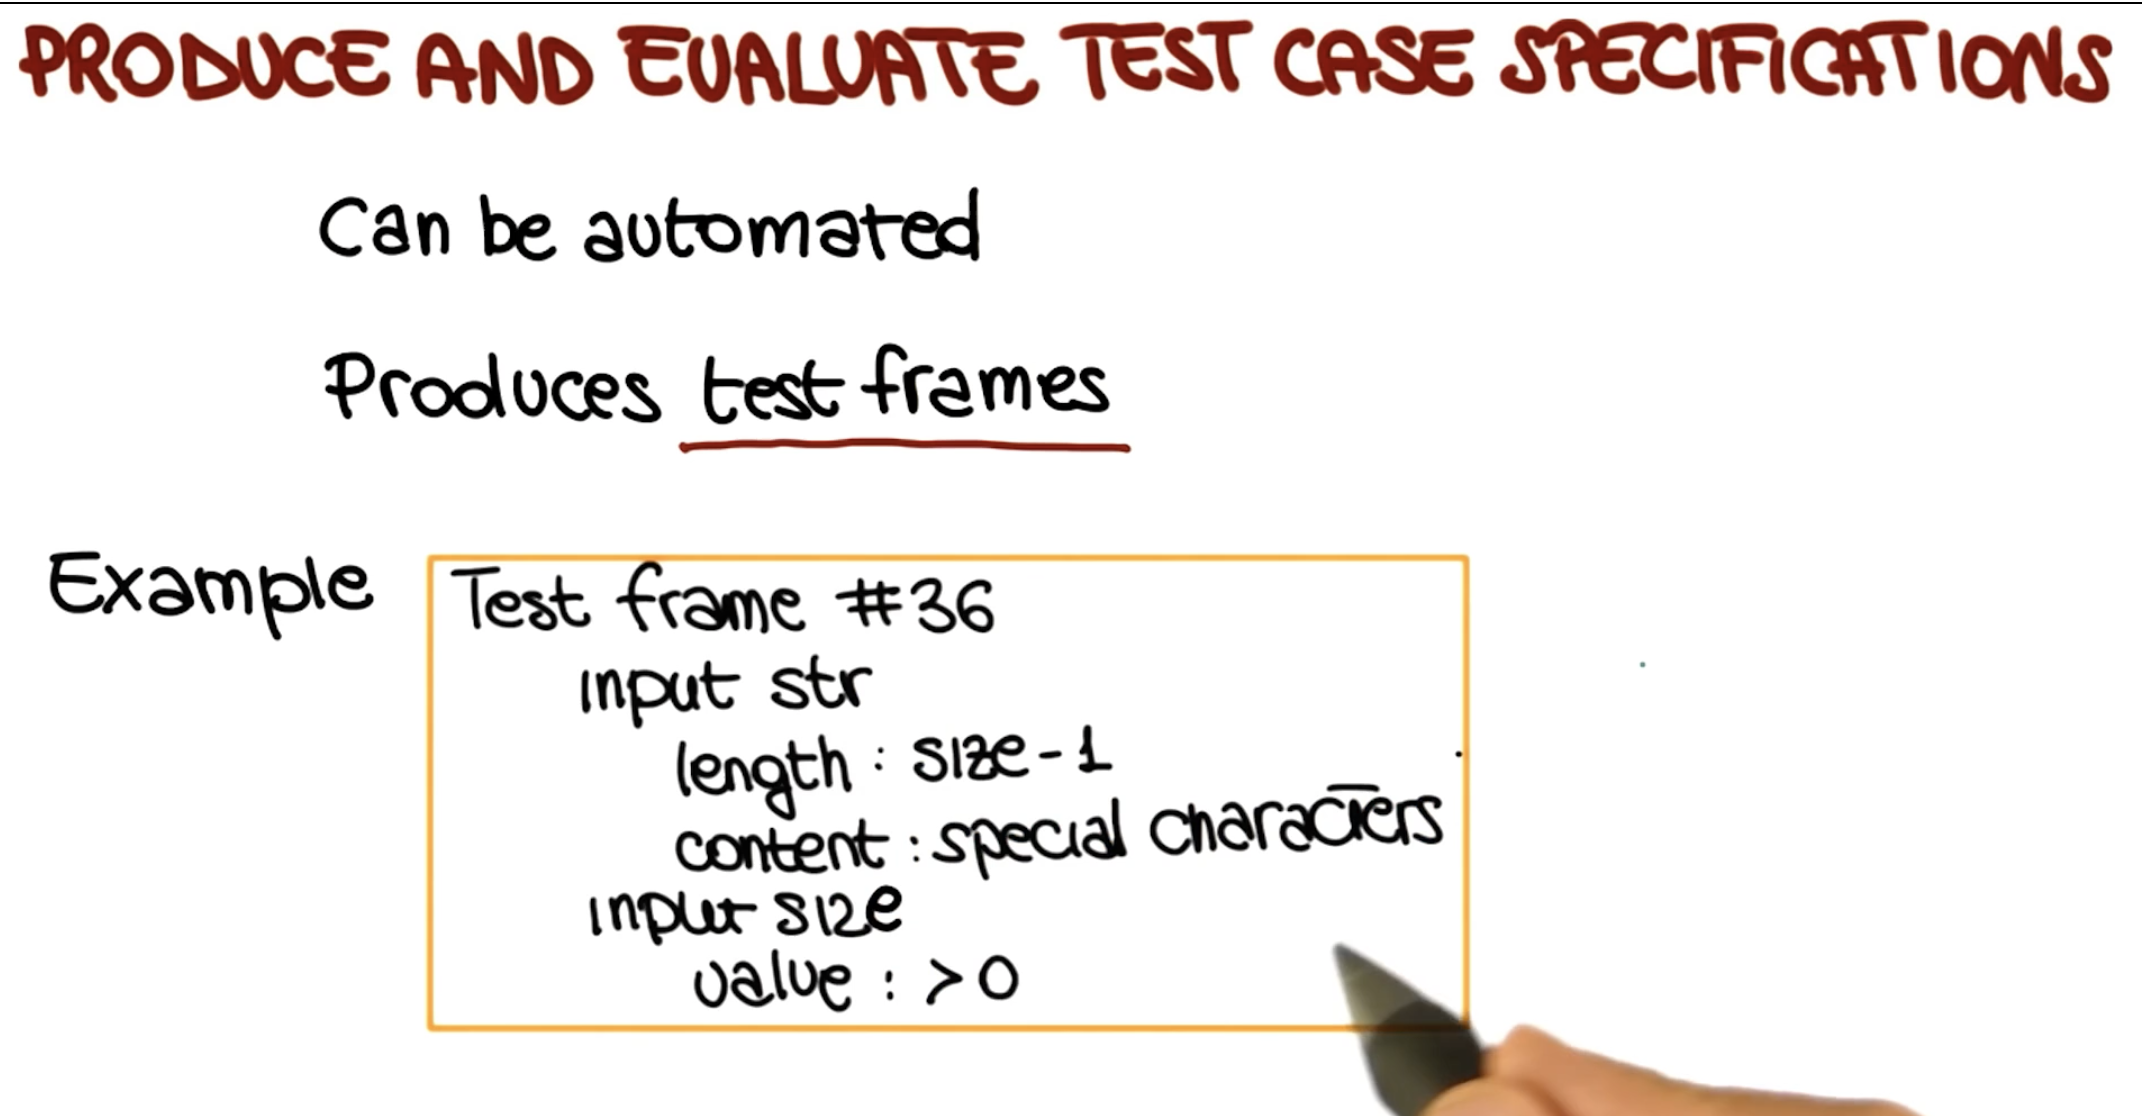 PRODUCE AND EVALUATE TEST CASE SPECIFICATIONS
Can be automated
Produces test frames
Example
Test frame #36
input str
length : size-1
content : special characters
input size
value : >0